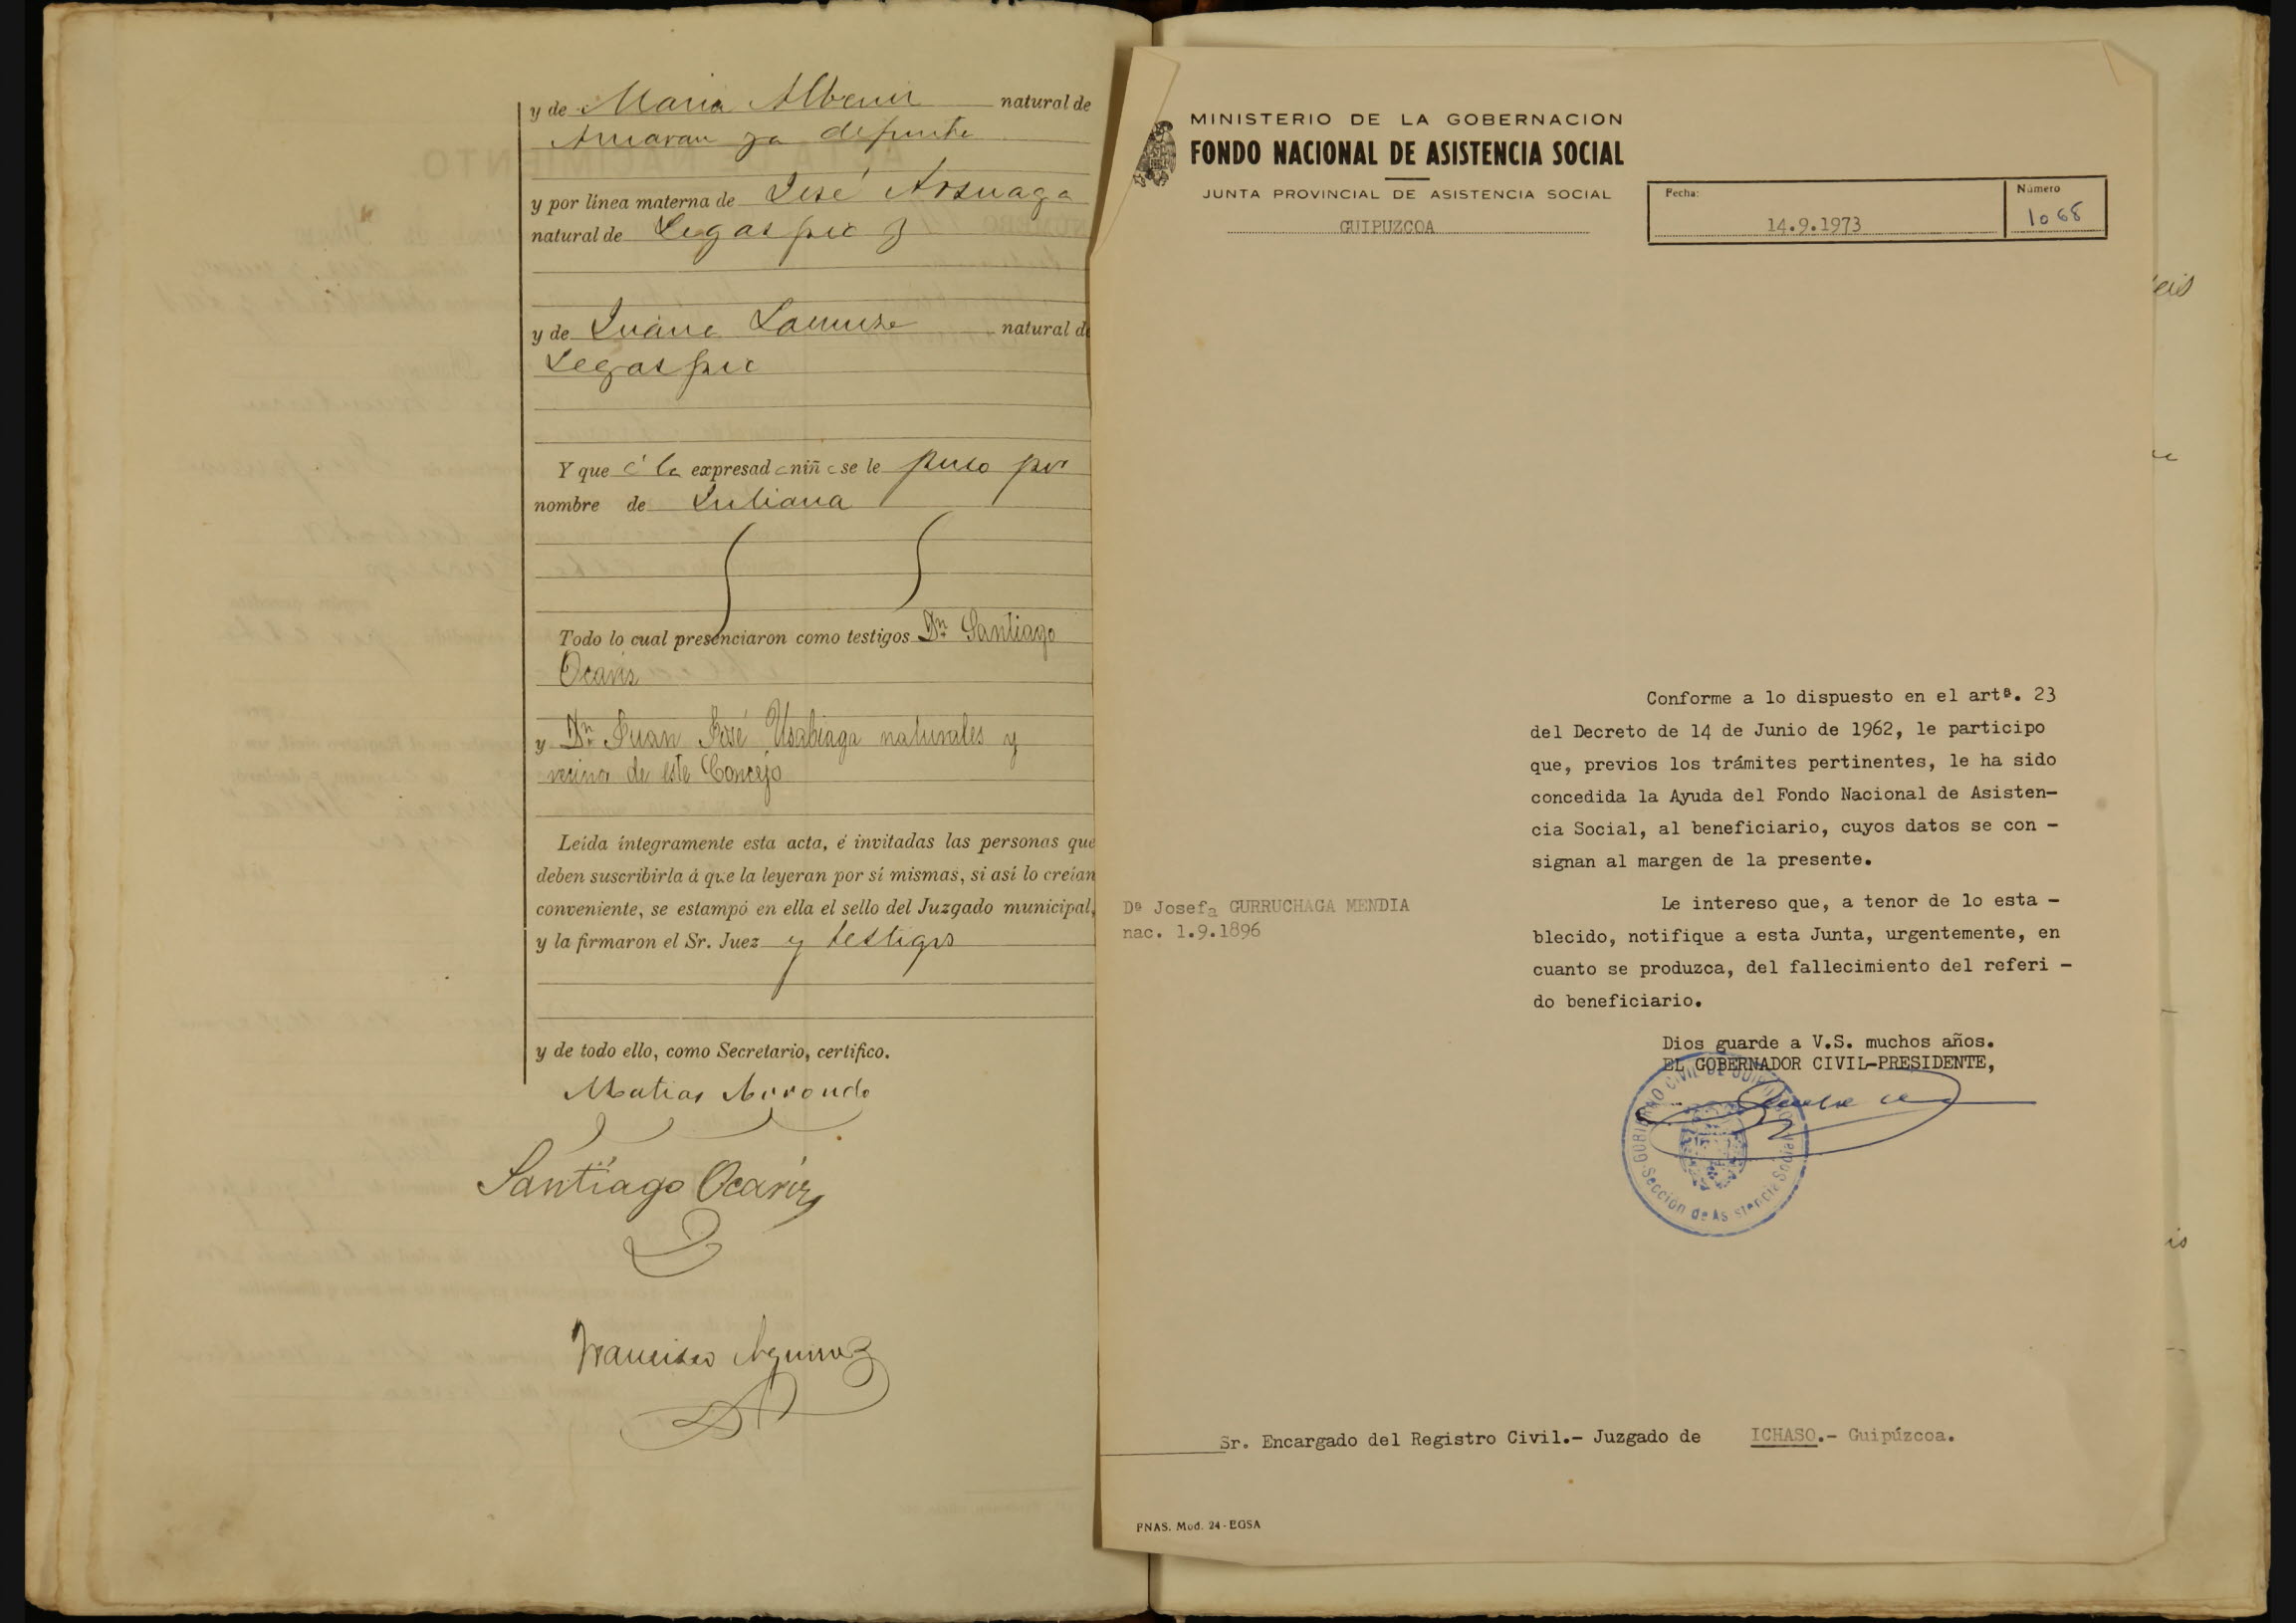 y de Maria Alberdi natural de
Amavan ya defunta
y por línea materna de José Arsuaga
natural de Legazpia y
y de Juana Lamuza natural de
Legazpia
Y que á la expresada niña se le puso por
nombre de Juliana
Todo lo cual presenciaron como testigos Dn. Santiago
Ocariz
y Dn. Juan José Usabiaga naturales y
vecinos de este Concejo
Leída íntegramente esta acta, é invitadas las personas que
deben suscribirla á que la leyeran por sí mismas, si así lo creían
conveniente, se estampó en ella el sello del Juzgado municipal,
y la firmaron el Sr. Juez y testigos
y de todo ello, como Secretario, certifico.
Matias Arrondo
Santiago Ocariz
Francisco Aguirre
MINISTERIO DE LA GOBERNACION
FONDO NACIONAL DE ASISTENCIA SOCIAL
JUNTA PROVINCIAL DE ASISTENCIA SOCIAL
GUIPUZCOA
Fecha:
14.9.1973
Número
1068
Conforme a lo dispuesto en el artº. 23
del Decreto de 14 de Junio de 1962, le participo
que, previos los trámites pertinentes, le ha sido
concedida la Ayuda del Fondo Nacional de Asisten-
cia Social, al beneficiario, cuyos datos se con -
signan al margen de la presente.
Dª Josefa GURRUCHAGA MENDIA
nac. 1.9.1896
Le intereso que, a tenor de lo esta -
blecido, notifique a esta Junta, urgentemente, en
cuanto se produzca, del fallecimiento del referi -
do beneficiario.
Dios guarde a V.S. muchos años.
EL GOBERNADOR CIVIL-PRESIDENTE,
GOBIERNO CIVIL DE GUIPUZCOA
Sección de Asistencia Social
Sr. Encargado del Registro Civil.- Juzgado de ICHASO.- Guipúzcoa.
FNAS. Mod. 24 - EOSA